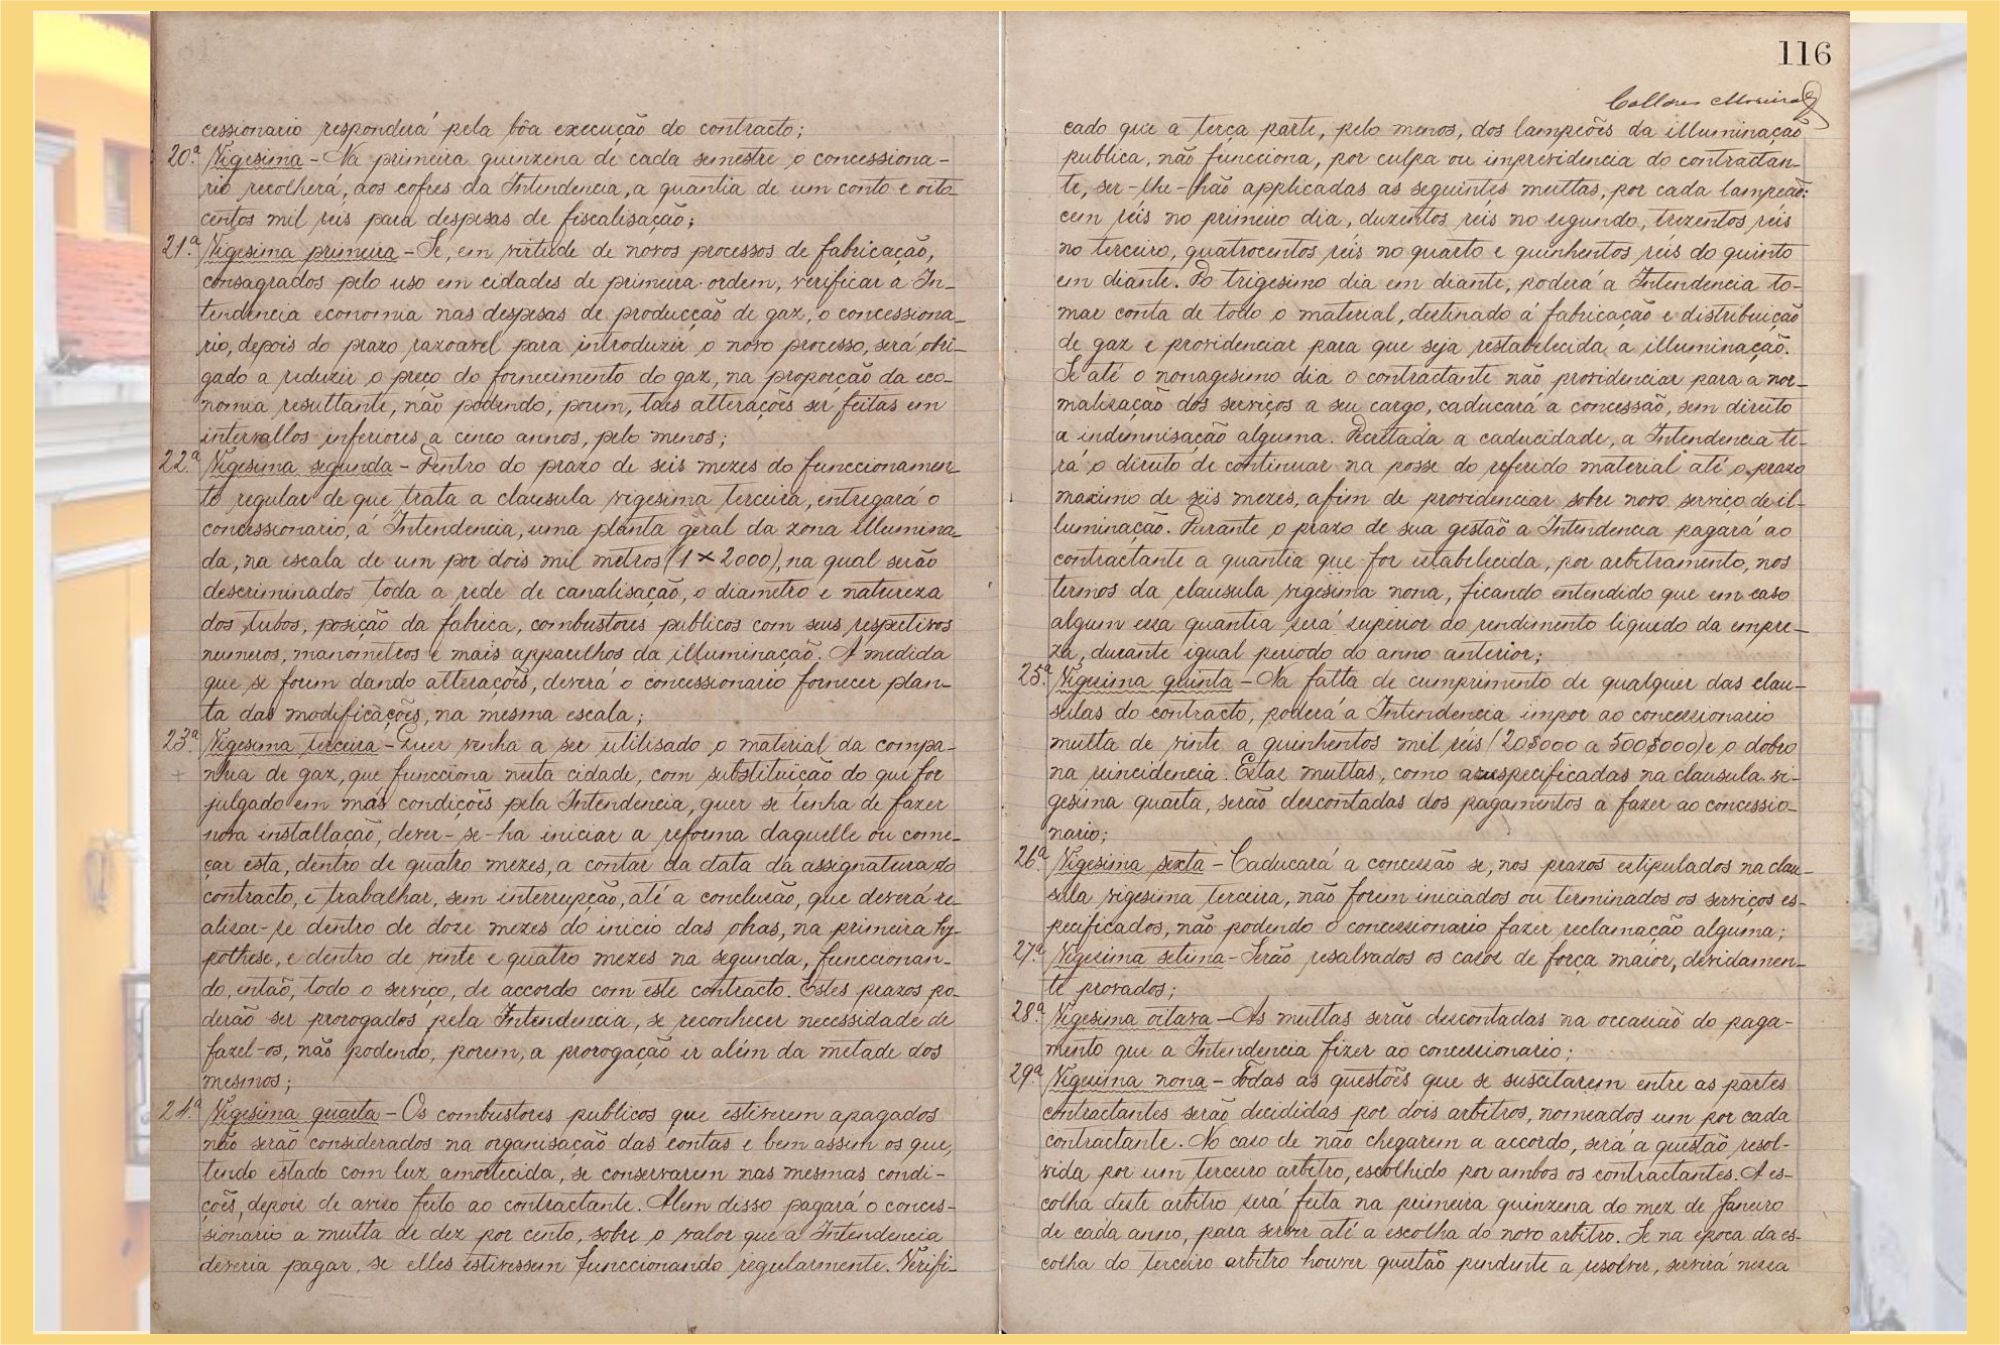 cessionario responderá pela bôa execução do contracto;
20.ª Vigesima - Na primeira quinzena de cada semestre o concessiona-
rio recolherá, aos cofres da Intendencia, a quantia de um conto e oito
centos mil réis para despesas de fiscalisação;
21.ª Vigesima primeira - Se, em virtude de novos processos de fabricação,
consagrados pelo uso em cidades de primeira ordem, verificar a In-
tendencia economia nas despesas de producção de gaz, o concessiona-
rio, depois do prazo razoavel para introduzir o novo processo, será obri-
gado a reduzir o preço do fornecimento do gaz, na proporção da eco-
nomia resultante, não podendo, porem, taes alterações ser feitas em
intervallos inferiores a cinco annos, pelo menos;
22.ª Vigesima segunda - Dentro do prazo de seis mezes do funccionamen-
to regular de que trata a clausula vigesima terceira, entregará o
concessionario, á Intendencia, uma planta geral da zona illumina-
da, na escala de um por dois mil metros (1 × 2000), na qual serão
descriminados toda a rede de canalisação, o diametro e natureza
dos tubos, posição da fabrica, combustores publicos com seus respetivos
numeros, manometros e mais apparelhos da illuminação. A medida
que se forem dando alterações, deverá o concessionario fornecer plan-
ta das modificações, na mesma escala;
23.ª Vigesima terceira - Quer venha a ser utilisado o material da compa-
+ nhia de gaz, que funcciona nesta cidade, com substituição do que for
julgado em más condições pela Intendencia, quer se tenha de fazer
nova installação, dever-se-ha iniciar a reforma daquelle ou come-
çar esta, dentro de quatro mezes, a contar da data da assignatura do
contracto, e trabalhar, sem interrupção, até a conclusão, que deverá re-
alisar-se dentro de doze mezes do inicio das obras, na primeira hy-
pothese, e dentro de vinte e quatro mezes na segunda, funccionan-
do, então, todo o serviço, de accordo com este contracto. Estes prazos po-
derão ser prorogados pela Intendencia, se reconhecer necessidade de
fazel-os, não podendo, porem, a prorogação ir além da metade dos
mesmos;
24.ª Vigesima quarta - Os combustores publicos que estiverem apagados
não serão considerados na organisação das contas e bem assim os que,
tendo estado com luz amortecida, se conservarem nas mesmas condi-
ções, depois de aviso feito ao contractante. Alem disso pagará o conces-
sionario a multa de dez por cento, sobre o valor que a Intendencia
deveria pagar, se elles estivessem funccionando regularmente. Verifi-
116
Collares Moreira
cado que a terça parte, pelo menos, dos lampeões da illuminação
publica, não funcciona, por culpa ou imprevidencia do contractan-
te, ser-lhe-hão applicadas as seguintes multas, por cada lampeão:
cem réis no primeiro dia, duzentos réis no segundo, trezentos réis
no terceiro, quatrocentos réis no quarto e quinhentos réis do quinto
em diante. Do trigesimo dia em diante, poderá a Intendencia to-
mar conta de todo o material, destinado á fabricação e distribuição
de gaz e providenciar para que seja restabelecida a illuminação.
Se até o nonagesimo dia o contractante não providenciar para a nor-
malisação dos serviços a seu cargo, caducará a concessão, sem direito
a indemnisação alguma. Decretada a caducidade, a Intendencia te-
rá o direito de continuar na posse do referido material até o prazo
maximo de seis mezes, afim de providenciar sobre novo serviço de il-
luminação. Durante o prazo de sua gestão a Intendencia pagará ao
contractante a quantia que for estabelecida, por arbitramento, nos
termos da clausula vigesima nona, ficando entendido que em caso
algum essa quantia será superior ao rendimento liquedo da empre-
za, durante igual periodo do anno anterior;
25.ª Vigesima quinta - Na falta de cumprimento de qualquer das clau-
sulas do contracto, poderá a Intendencia impor ao concessionario
multa de vinte a quinhentos mil réis (20$000 a 500$000) e o dobro
na reincidencia. Estas multas, como as especificadas na clausula vi-
gesima quarta, serão descontadas dos pagamentos a fazer ao concessio-
nario;
26.ª Vigesima sexta - Caducará a concessão se, nos prazos estipulados na clau-
sula vigesima terceira, não forem iniciados ou terminados os serviços es-
pecificados, não podendo o concessionario fazer reclamação alguma;
27.ª Vigesima setima - Serão resalvados os casos de força maior, devidamen-
te provados;
28.ª Vigesima oitava - As multas serão descontadas na occasião do paga-
mento que a Intendencia fizer ao concessionario;
29.ª Vigesima nona - Todas as questões que se suscitarem entre as partes
contractantes serão decididas por dois arbitros, nomeados um por cada
contractante. No caso de não chegarem a accordo, será a questão resol-
vida por um terceiro arbitro, escolhido por ambos os contractantes. A es-
colha deste arbitro será feita na primeira quinzena do mez de Janeiro
de cada anno, para servir até a escolha do novo arbitro. Se na epoca da es-
colha do terceiro arbitro houver questão pendente a resolver, servirá nessa